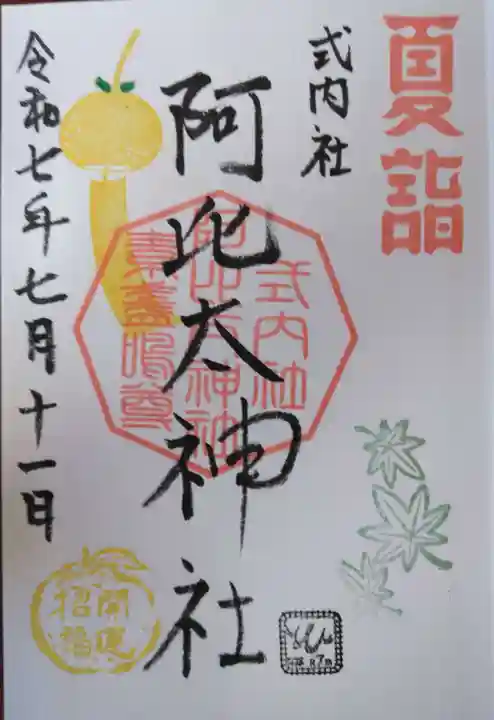 夏詣
式内社
阿比太神社
式内社
阿比太神社
素盞嗚尊
令和七年七月十一日
開運
招福